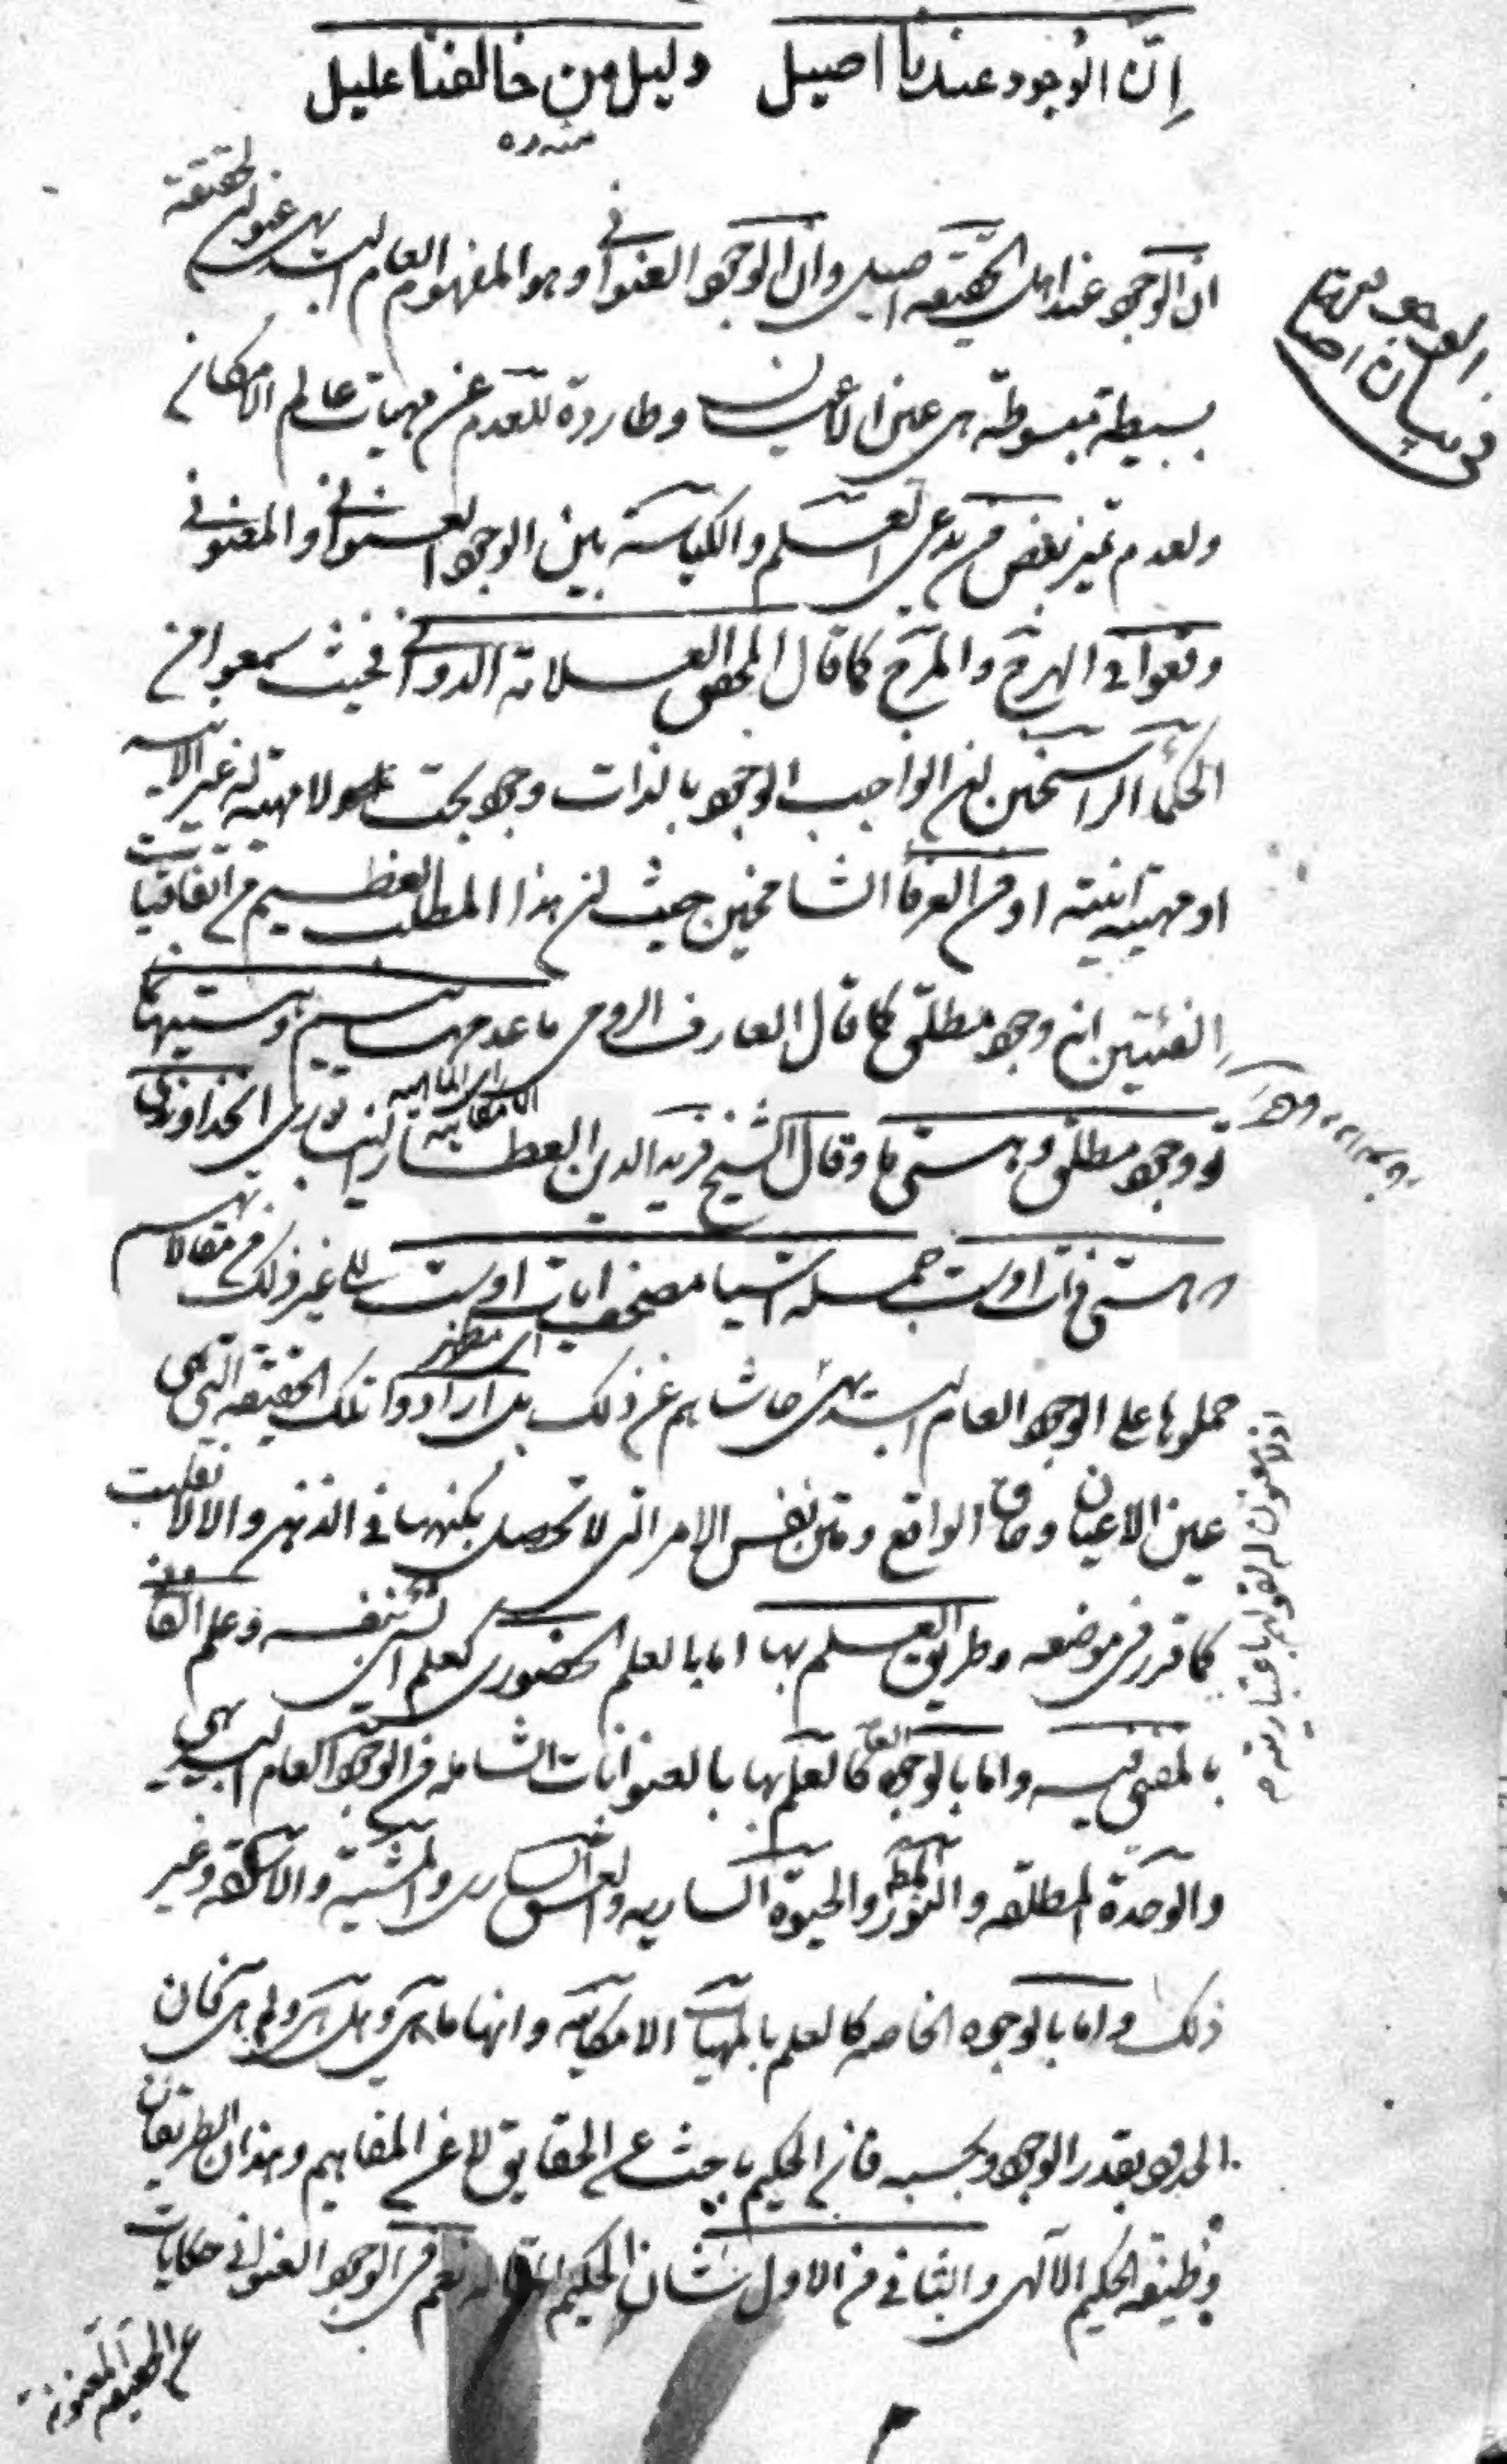 إنّ الوجود عندنا اصيل دليل من خالفنا عليل
منه ره
ان الوجود عند اهل الحقيقه اصيل وان الوجود العنوانی وهو المفهوم العام البديهی عنوان لحقيقة
بسيطة مبسوطة هی عين الاعيان وطاردة للعدم عن مهيات عالم الامكان
فی بيان اصالة الوجود
ولعدم تميز بعض من يدعی العلم والكياسة بين الوجود العنوانی والمعنونی
وقعوا فی الهرج والمرج كما قال المحقق العلامة الدوانی فحيث سمعوا من
الحكماء الراسخين ان الواجب الوجود بالذات وجود بحت ولا مهية له غير الانية
او مهيته انيته او من العرفاء الشامخين حيث ان هذا المطلب العظيم من اتفاقيات
الفئتين انه وجود مطلق كما قال العارف الرومی ما عدمهائيم و هستيهاما
ای الماهية الامكانية
تو وجود مطلق و هستی ما وقال الشيخ فريد الدين العطار النيشابوری ان خداوندی
كه هستی ذات اوست جمله اشيا مصحف ايات اوست الی غير ذلك من مقالاتهم
ای مظهر
حملوها علی الوجود العام البديهی حاشاهم عن ذلك بل ارادوا تلك الحقيقه التی هی
عين الاعيان وحاق الواقع ومتن نفس الامر التی لا تحصل بكنهها فی الذهن والا لانقلبت
كما قرر فی موضعه وطريق العلم بها اما بالعلم الحضوری كعلم الشیء بنفسه وعلم الفانی
بالمفنی فيه واما بالوجوه العامة كالعلم بها بالعنوانات الشاملة من الوجود العام البديهی
والوحدة المطلقه والنور والحيوة الساريه والعشق الساری والمشية و وغير
ذلك واما بالوجوه الخاصه كالعلم بالمهيات الامكانيه وانها ما هی وهل هی ولم هی فان
الحدود بقدر الوجود وبحسبه فان الحكيم باحث عن الحقايق لا عن المفاهيم وهذان الطريقان
وظيفة الحكيم الالهی والثانی من الاول شان الحكيم نعم فی الوجود العنوانی حكايات
عن الحقيقة المعنونة